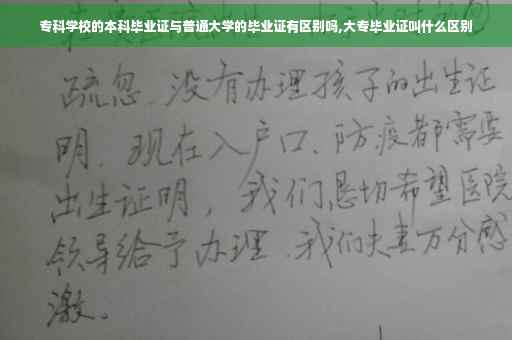 专科学校的本科毕业证与普通大学的毕业证有区别吗,大专毕业证叫什么区别
疏忽.没有办理孩子的出生证
明.现在入户口、防疫都需要
出生证明,我们恳切希望医院
领导给予办理.我们夫妻万分感
激。